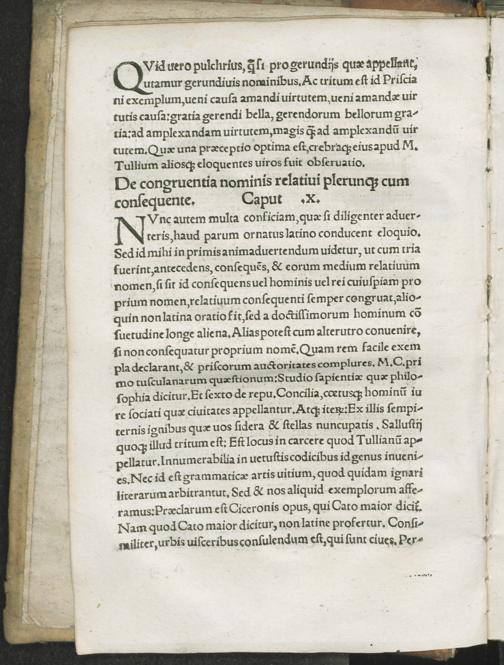 QVid uero pulchrius, q̃ si pro gerundijs quæ appellant,
utamur gerundiuis nominibus. Ac tritum est id Priscia
ni exemplum, ueni causa amandi uirtutem, ueni amandæ uir
tutis causa: gratia gerendi bella, gerendorum bellorum gra-
tia: ad amplexandam uirtutem, magis q̃ ad amplexandũ uir
tutem. Quæ una præceptio optima est, crebraq; eius apud M.
Tullium aliosq; eloquentes uiros fuit obseruatio.
De congruentia nominis relatiui plerunq; cum
consequente. Caput .X.
NVnc autem multa conficiam, quæ si diligenter aduer-
teris, haud parum ornatus latino conducent eloquio.
Sed id mihi in primis animaduertendum uidetur, ut cum tria
fuerint, antecedens, consequẽs, & eorum medium relatiuum
nomen, si sit id consequens uel hominis uel rei cuiuspiam pro
prium nomen, relatiuum consequenti semper congruat, alio-
quin non latina oratio fit, sed a doctissimorum hominum cõ
suetudine longe aliena. Alias potest cum alterutro conuenire,
si non consequatur proprium nomẽ. Quam rem facile exem
pla declarant, & priscorum auctoritates complures. M. C. pri
mo tusculanarum quæstionum: Studio sapientiæ quæ philo-
sophia dicitur. Et sexto de repu. Concilia, cœtusq; hominũ iu
re sociati quæ ciuitates appellantur. Atq; iteꝝ: Ex illis sempi-
ternis ignibus quæ uos sidera & stellas nuncupatis. Sallustij
quoq; illud tritum est: Est locus in carcere quod Tullianũ ap-
pellatur. Innumerabilia in uetustis codicibus id genus inueni-
es. Nec id est grammaticæ artis uitium, quod quidam ignari
literarum arbitrantur. Sed & nos aliquid exemplorum affe-
ramus: Præclarum est Ciceronis opus, qui Cato maior dicit̃.
Nam quod Cato maior dicitur, non latine profertur. Consi-
militer, urbis uisceribus consulendum est, qui sunt ciues. Per-